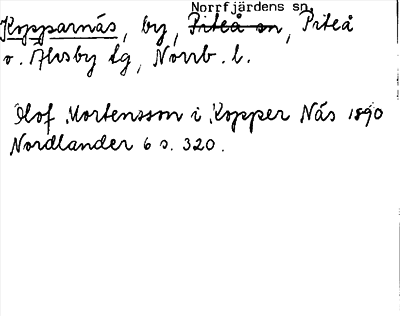 Norrfjärdens sn.
Kopparnäs, by, Piteå sn, Piteå
o. Älvsby tg, Norrb. l.
Olof Mortensson i Kopper Näs 1890
Nordlander 6 s. 320.